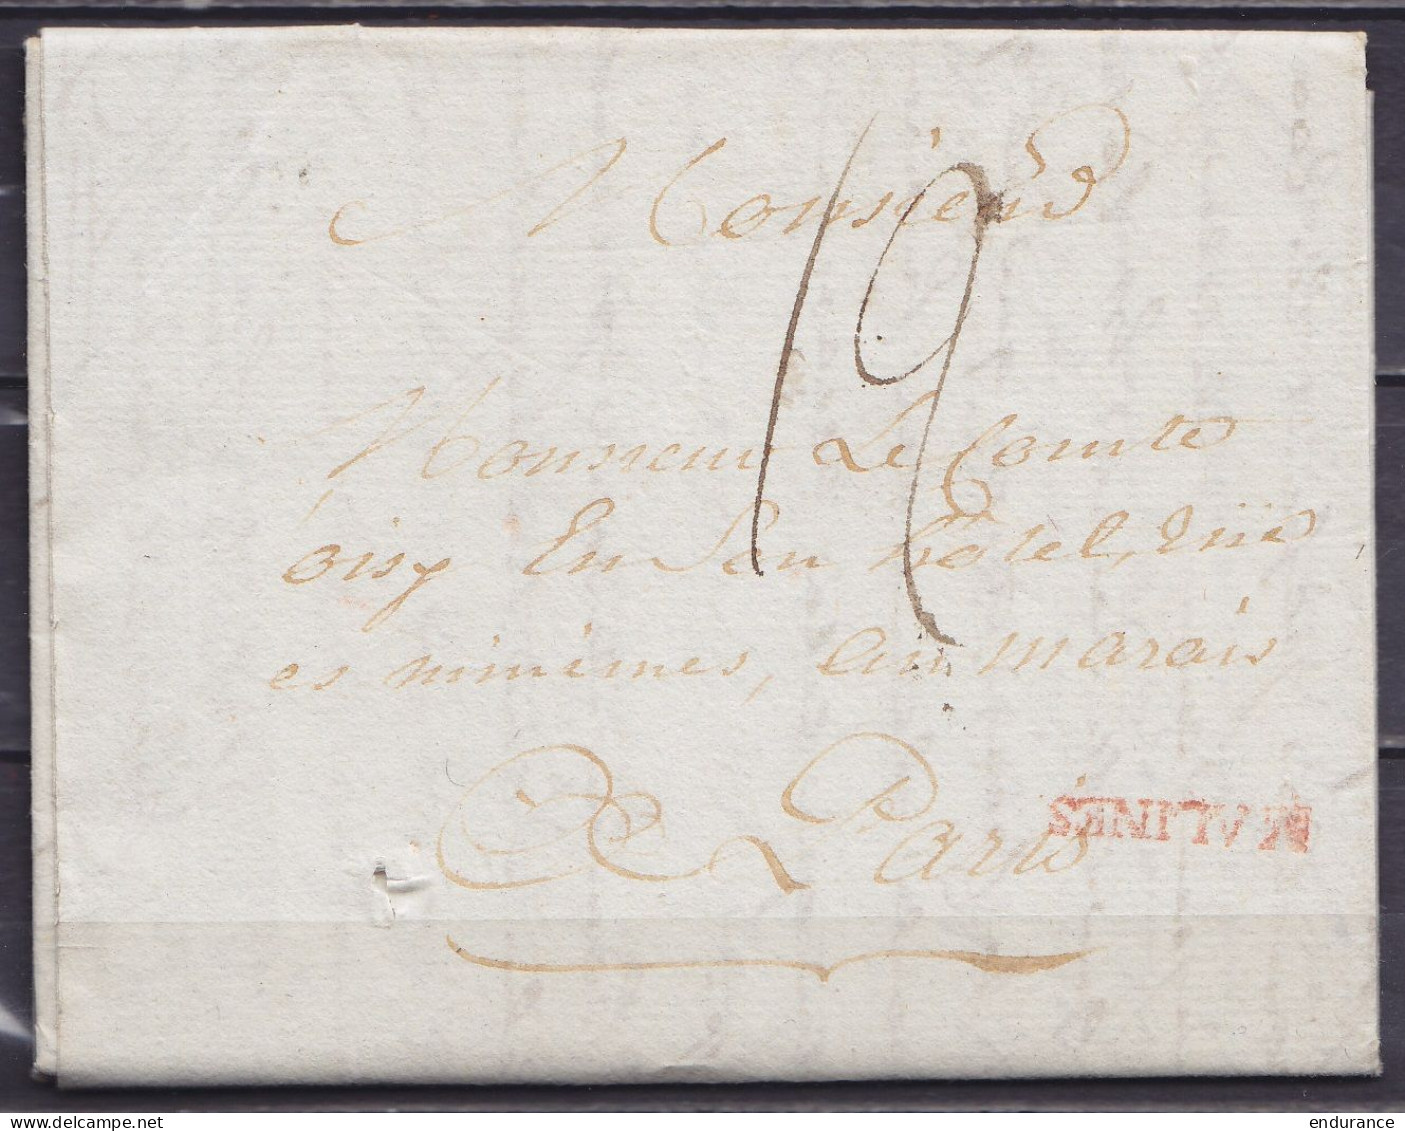 Monsieur
19
Monsieur Le Comte
oisy En Son hôtel, rüe
es minimes, au marais
A Paris
MALINES
endurance